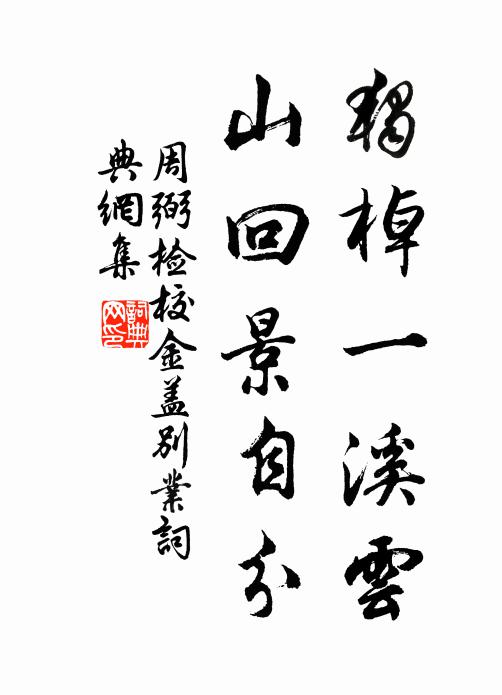 獨棹一溪雲
山回景自分
周弼检校金盖別業詞
典網集
詞典
网印